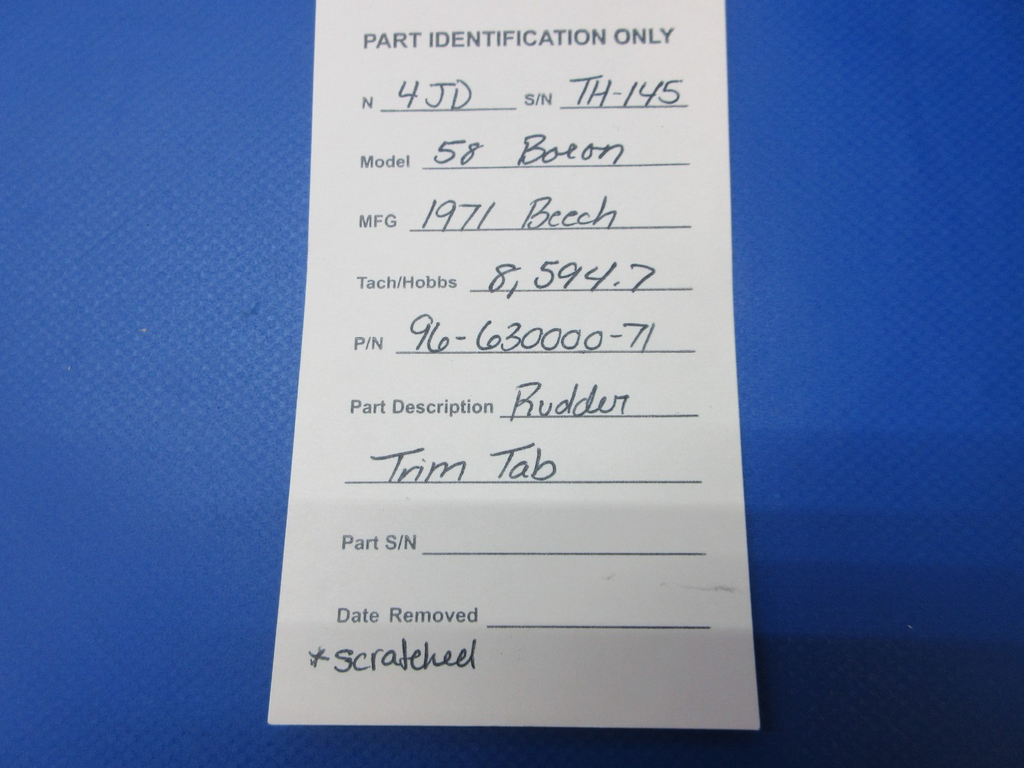 PART IDENTIFICATION ONLY
N 4JD S/N TH-145
Model 58 Baron
MFG 1971 Beech
Tach/Hobbs 8,594.7
P/N 96-630000-71
Part Description Rudder
Trim Tab
Part S/N
Date Removed
*scratched